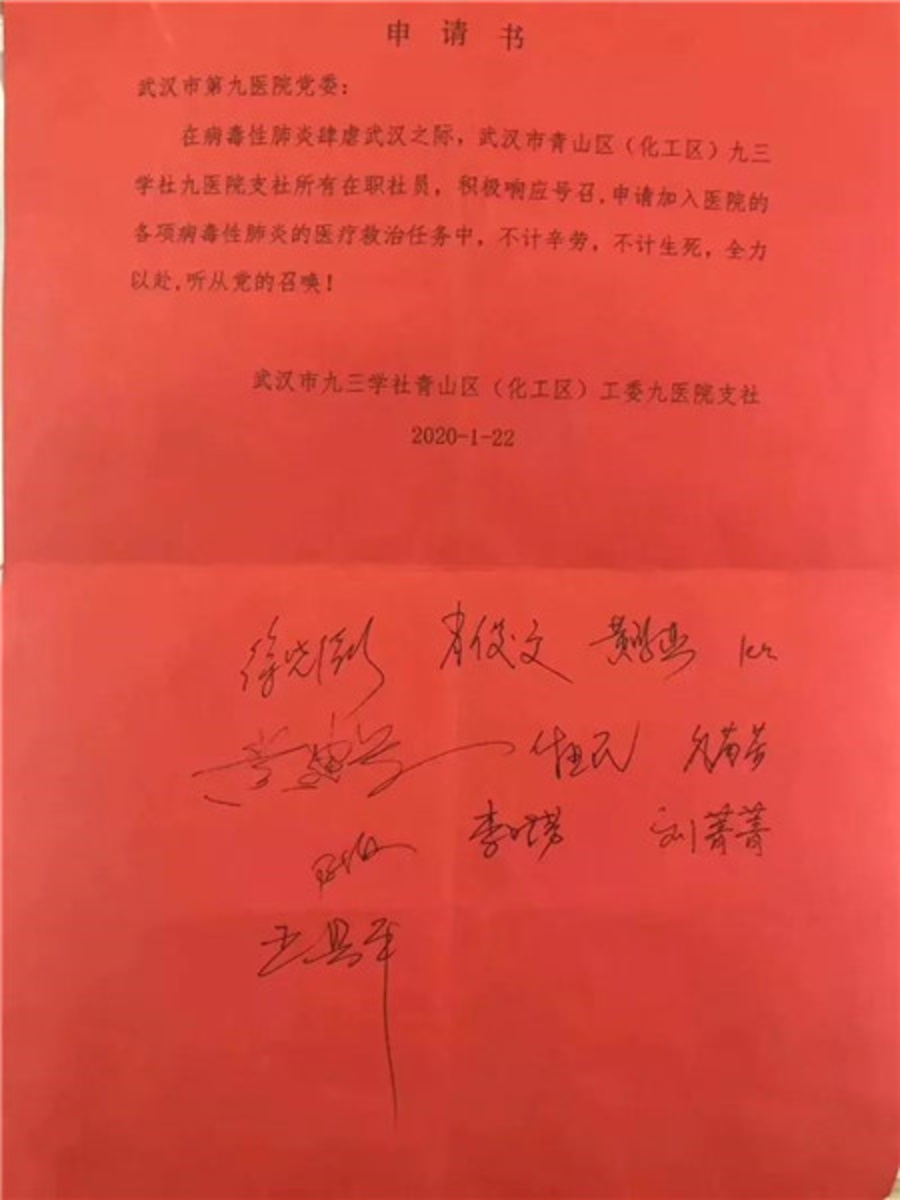 申请书
武汉市第九医院党委：
在病毒性肺炎肆虐武汉之际，武汉市青山区（化工区）九三
学社九医院支社所有在职社员，积极响应号召，申请加入医院的
各项病毒性肺炎的医疗救治任务中，不计辛劳，不计生死，全力
以赴，听从党的召唤！
武汉市九三学社青山区（化工区）工委九医院支社
2020-1-22
肖俊文
刘菁菁